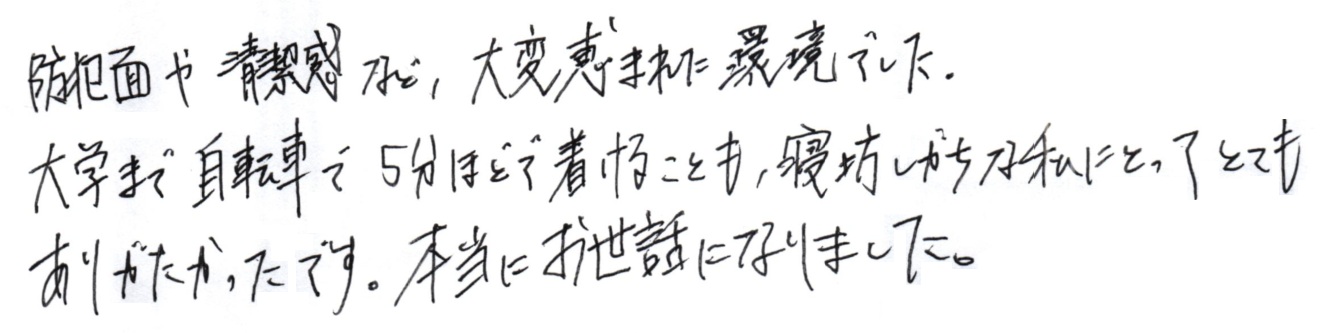 防犯面や清潔感など，大変恵まれた環境でした．
大学まで自転車で5分ほどで着けることも，寝坊しがちな私にとってとても
ありがたかったです。本当にお世話になりました。